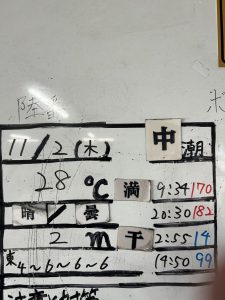 陸
11/2(木) 中潮
28℃ 満 9:34 170
晴/曇 20:30 182
2m 干 2:55 14
東4~6~6~6 14:50 99